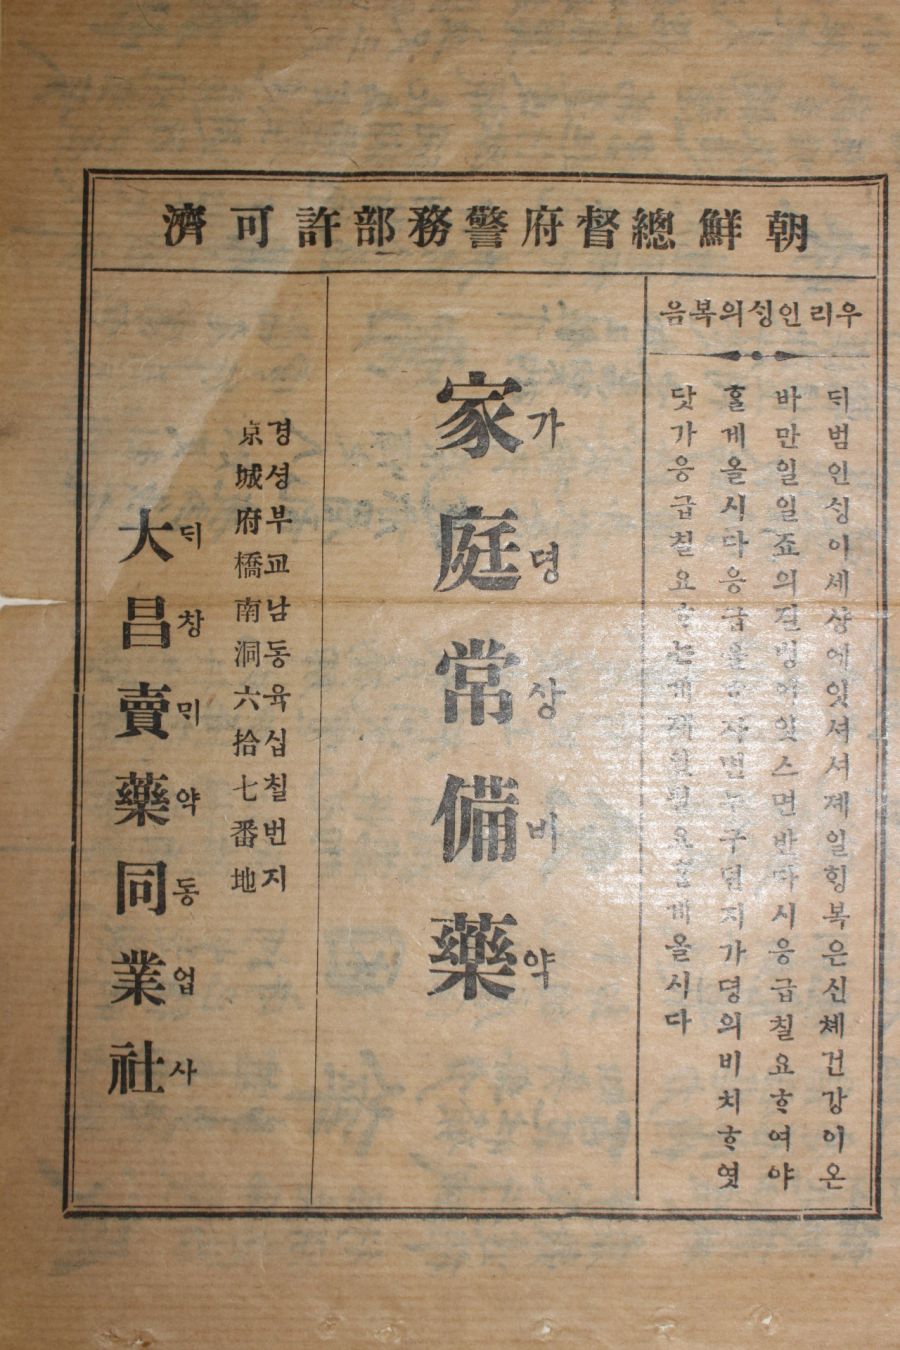 朝鮮總督府警務部許可濟
우리인ᄉᆡᆼ의복음
ᄃᆡ범인ᄉᆡᆼ이세상에잇셔셔졔일ᄒᆡᆼ복은신쳬건강이온
바만일일죠의질병이잇스면반다시응급칠요ᄒᆞ여야
ᄒᆞᆯ게올시다응급을ᄒᆞ자면누구던지가뎡의비치ᄒᆞ엿
닷가응급칠요ᄒᆞ는게제일필요ᄒᆞᆫ게올시다
家庭常備藥
가뎡상비약
경셩부교남동육십칠번지
京城府橋南洞六拾七番地
ᄃᆡ창ᄆᆡ약동업사
大昌賣藥同業社